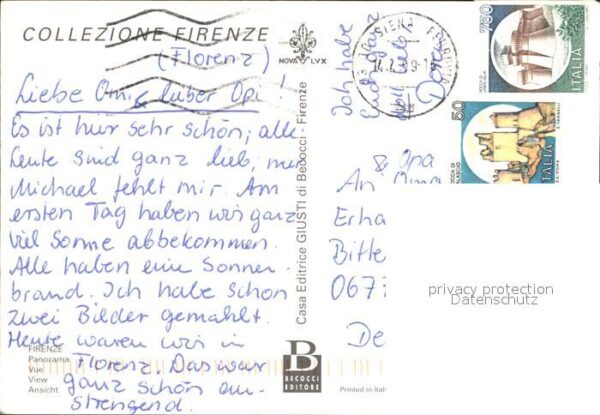 COLLEZIONE FIRENZE
(Florenz)
Liebe Omi, lieber Opi!
Es ist hier sehr schön, alle
Leute sind ganz lieb, nur
Michael fehlt mir. Am
ersten Tag haben wir ganz
viel Sonne abbekommen.
Alle haben eine Sonnen-
brand. Ich habe schon
zwei Bilder gemahlt.
Heute waren wir in
Florenz. Das war
ganz schön an-
strengend.
FIRENZE
Panorama
Vue
View
Ansicht
NOVA LVX
Casa Editrice GIUSTI di Becocci - Firenze
B
BECOCCI
EDITORE
Printed in Ital
Ich habe
Euch ganz
doll lieb
SIENA
750
ITALIA
50
ITALIA
& Opa
An Oma
Erha
Bitte
067
De
privacy protection
Datenschutz